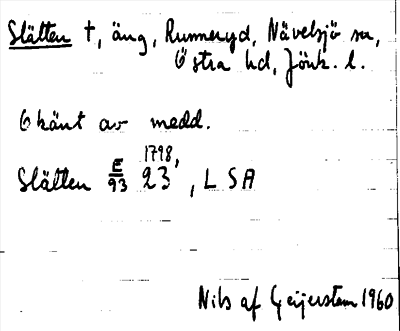 Slätten †, äng, Runneryd, Nävelsjö sn,
Östra hd, Jönk. l.
Okänt av medd.
1798,
Slätten E/93 23, LSA
Nils af Geijerstam 1960